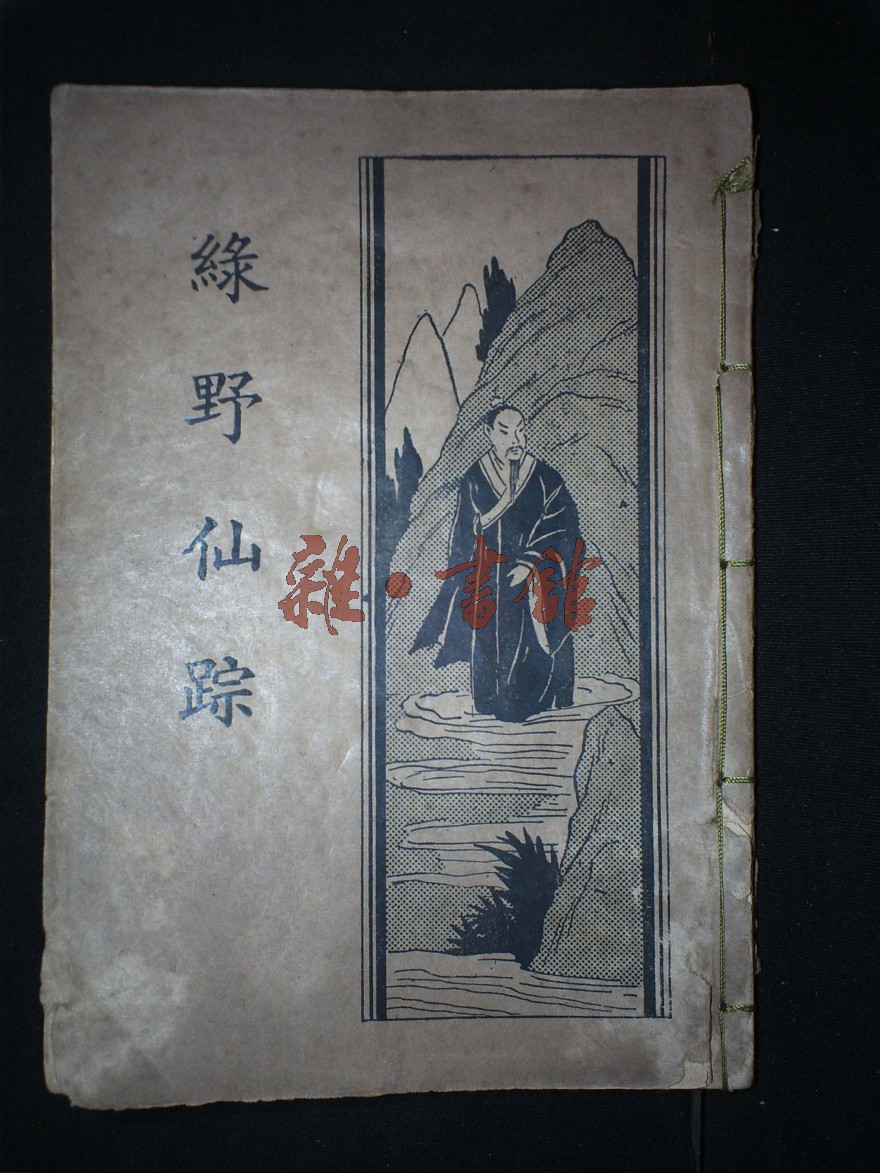 綠野仙踪
雜·書館